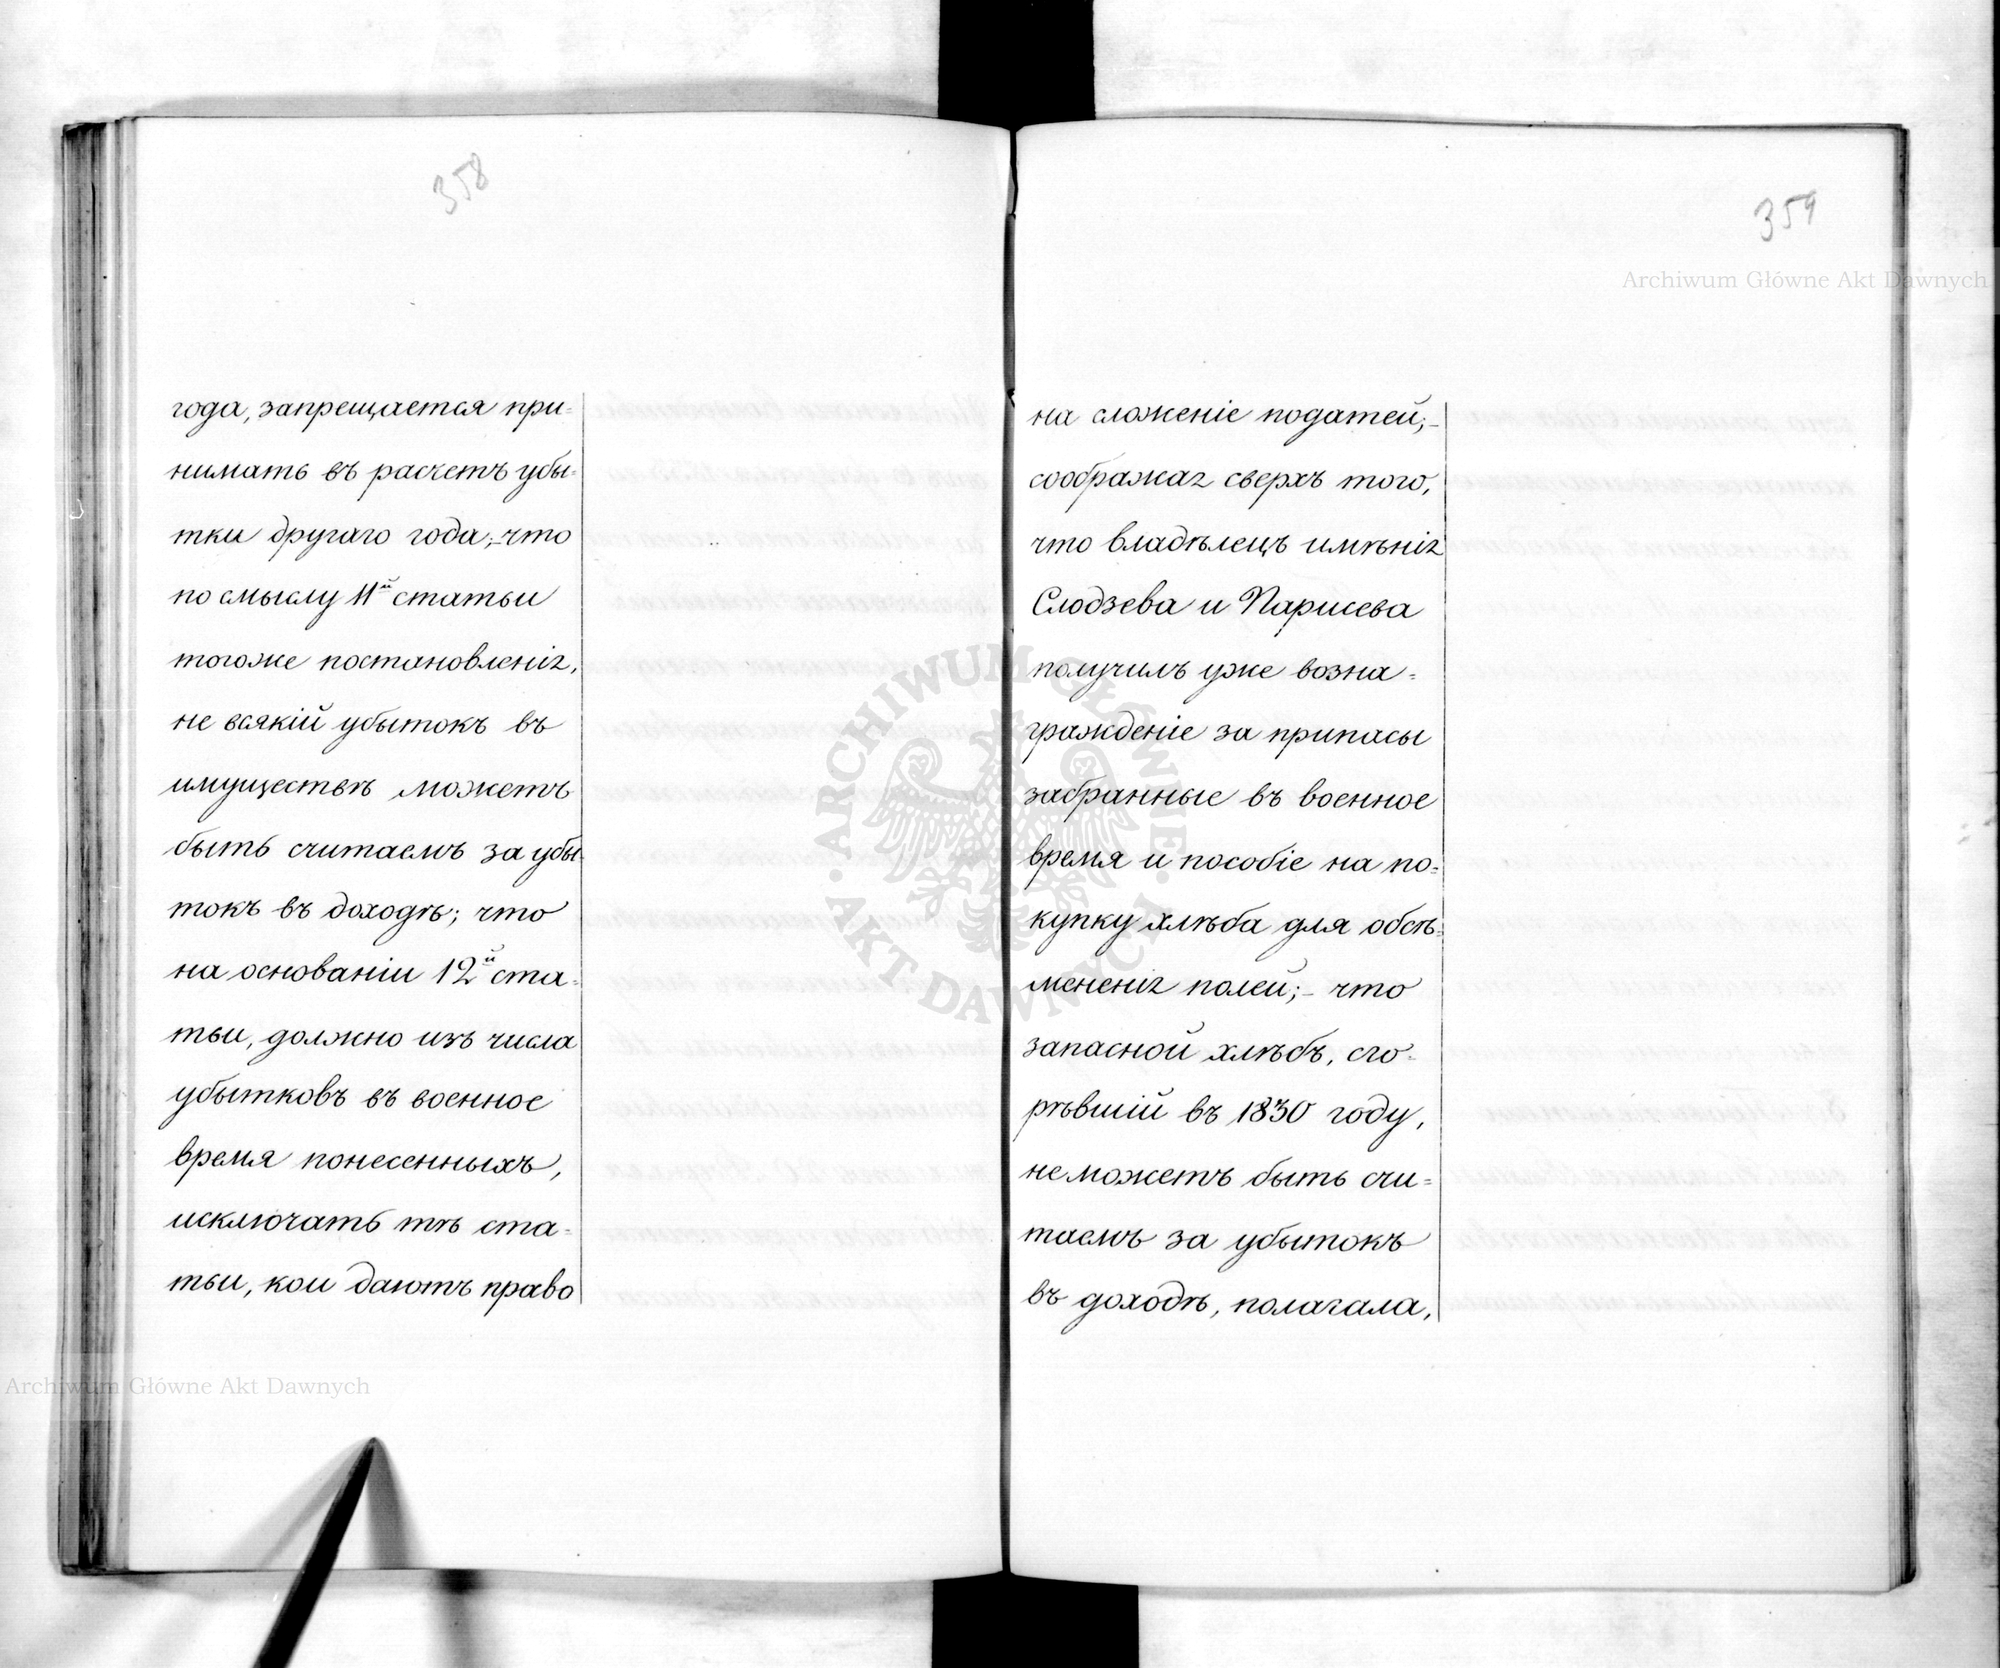 358
года, запрещается при=
нимать въ расчетъ убы=
тки другаго года;-что
по смыслу 11й статьи
тогоже постановленія,
не всякій убытокъ въ
имуществѣ можетъ
быть считаемъ за убы=
токъ въ доходѣ; что
на основаніи 12й ста=
тьи, должно изъ числа
убытковъ въ военное
время понесенныхъ,
исключать тѣ ста=
тьи, кои даютъ право
359
на сложеніе податей;-
соображая сверхъ того,
что владѣлецъ имѣнія
Слодзева и Парисева
получилъ уже возна=
гражденіе за припасы
забранные въ военное
время и пособіе на по=
купку хлѣба для обсѣ=
мененія полей;- что
запасной хлѣбъ, сго=
рѣвшій въ 1830 году,
не можетъ быть счи=
таемъ за убытокъ
въ доходѣ, полагала,
Archiwum Główne Akt Dawnych
Archiwum Główne Akt Dawnych
ARCHIWUM GŁÓWNE AKT DAWNYCH